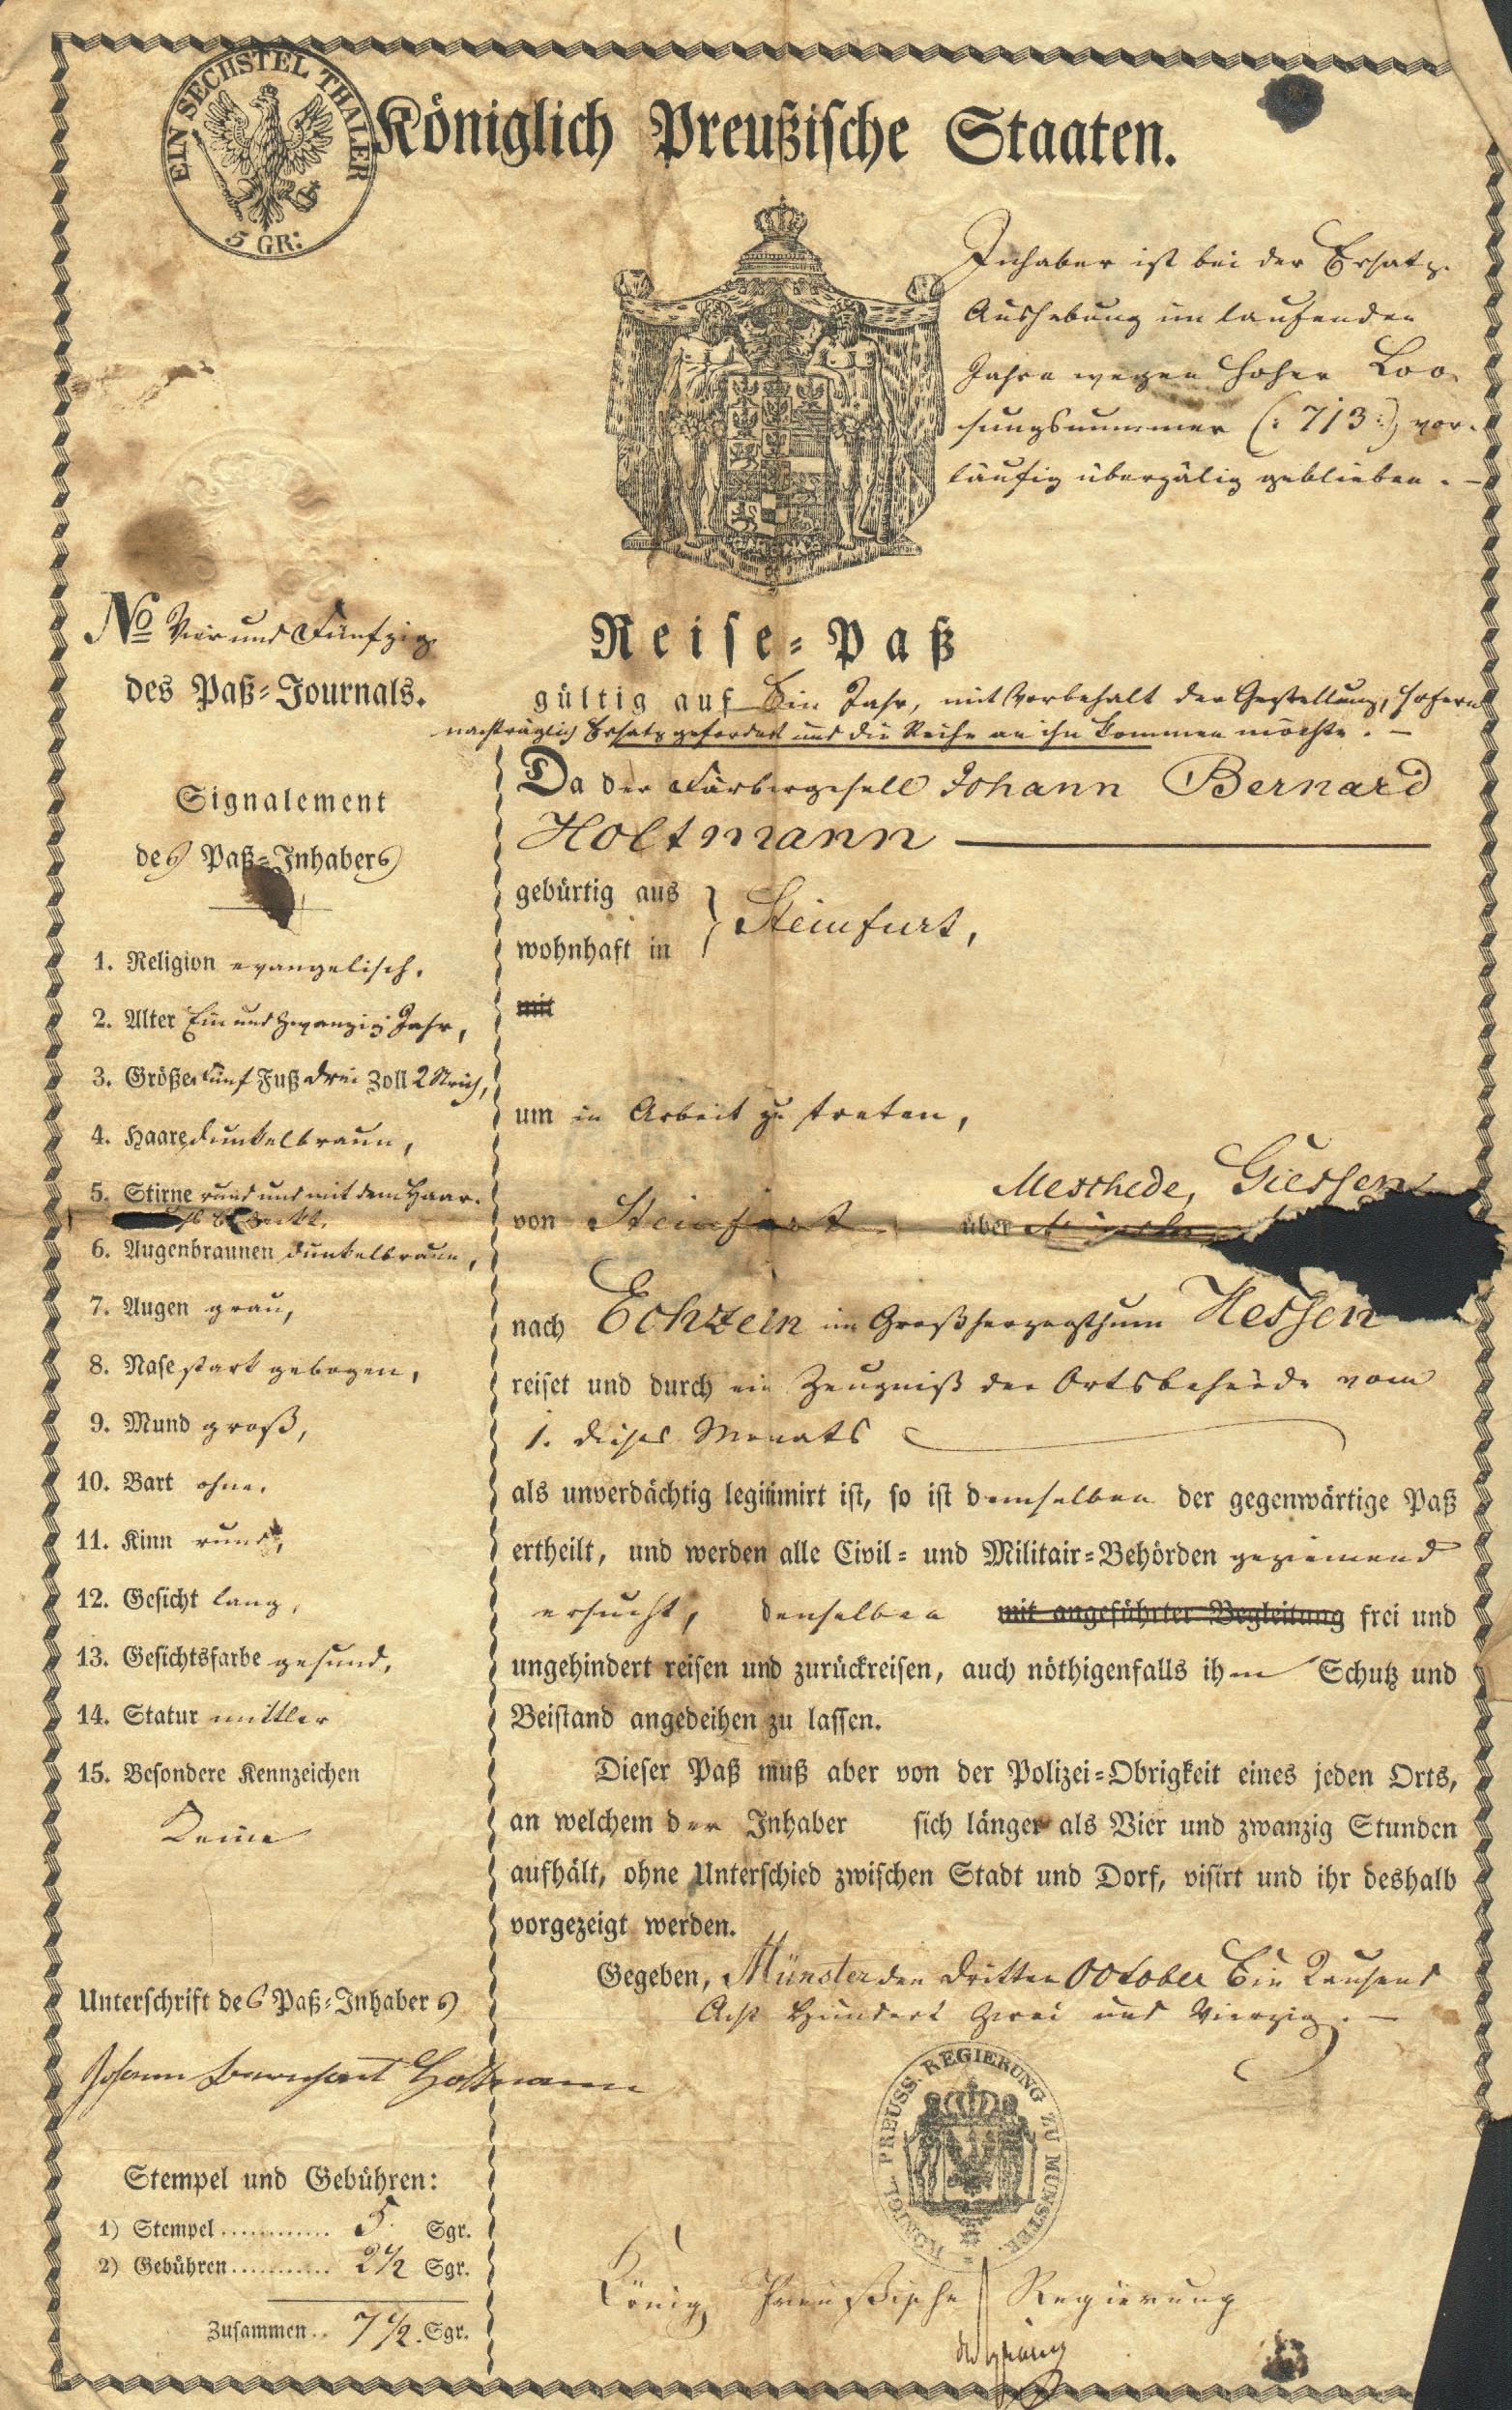 EIN SECHSTEL THALER
5 GR:
Königlich Preußische Staaten.
Inhaber ist bei der Ersatz-
Aushebung im laufenden
Jahre wegen hoher Loo-
sungsnummer (: 713 :) vor-
läufig überzälig geblieben. –
No Vier und Fünfzig
des Paß-Journals.
Reise-Paß
gültig auf Ein Jahr, mit Vorbehalt der Gestellung, sofern
nachträglich Ersatz gefordert und die Reihe an ihn kommen möchte. –
Signalement
des Paß-Inhabers
1. Religion evangelisch.
2. Alter Ein und Zwanzig Jahr,
3. Größe Fünf Fuß drei Zoll 2 Strich,
4. Haare dunkelbraun,
5. Stirne rund und mit dem Haar
bedeckt.
6. Augenbraunen dunkelbraun,
7. Augen grau,
8. Nase stark gebogen,
9. Mund groß,
10. Bart ohne.
11. Kinn rund,
12. Gesicht lang,
13. Gesichtsfarbe gesund,
14. Statur mittler
15. Besondere Kennzeichen
Keine
Unterschrift des Paß-Inhabers
Johann Bernhard Holtmann
Stempel und Gebühren:
1) Stempel ............ 5 Sgr.
2) Gebühren ........... 2 1/2 Sgr.
Zusammen .. 7 1/2 Sgr.
Da der Färbergesell Johann Bernard
Holtmann
gebürtig aus
wohnhaft in } Steinfurt,
mit
um in Arbeit zu treten,
Meschede, Giessen
von Steinfurt über
nach Echzeln im Großherzogthum Hessen
reiset und durch ein Zeugniß der Ortsbehörde vom
1. dieses Monats
als unverdächtig legitimirt ist, so ist demselben der gegenwärtige Paß
ertheilt, und werden alle Civil- und Militair-Behörden geziemend
ersucht, denselben mit angeführter Begleitung frei und
ungehindert reisen und zurückreisen, auch nöthigenfalls ihm Schutz und
Beistand angedeihen zu lassen.
Dieser Paß muß aber von der Polizei-Obrigkeit eines jeden Orts,
an welchem der Inhaber sich länger als Vier und zwanzig Stunden
aufhält, ohne Unterschied zwischen Stadt und Dorf, visirt und ihr deshalb
vorgezeigt werden.
Gegeben, Münster den dritten October Ein Tausend
Acht Hundert Zwei und Vierzig. –
KÖNIGL. PREUSS. REGIERUNG ZU MÜNSTER.
König. Preußische Regierung